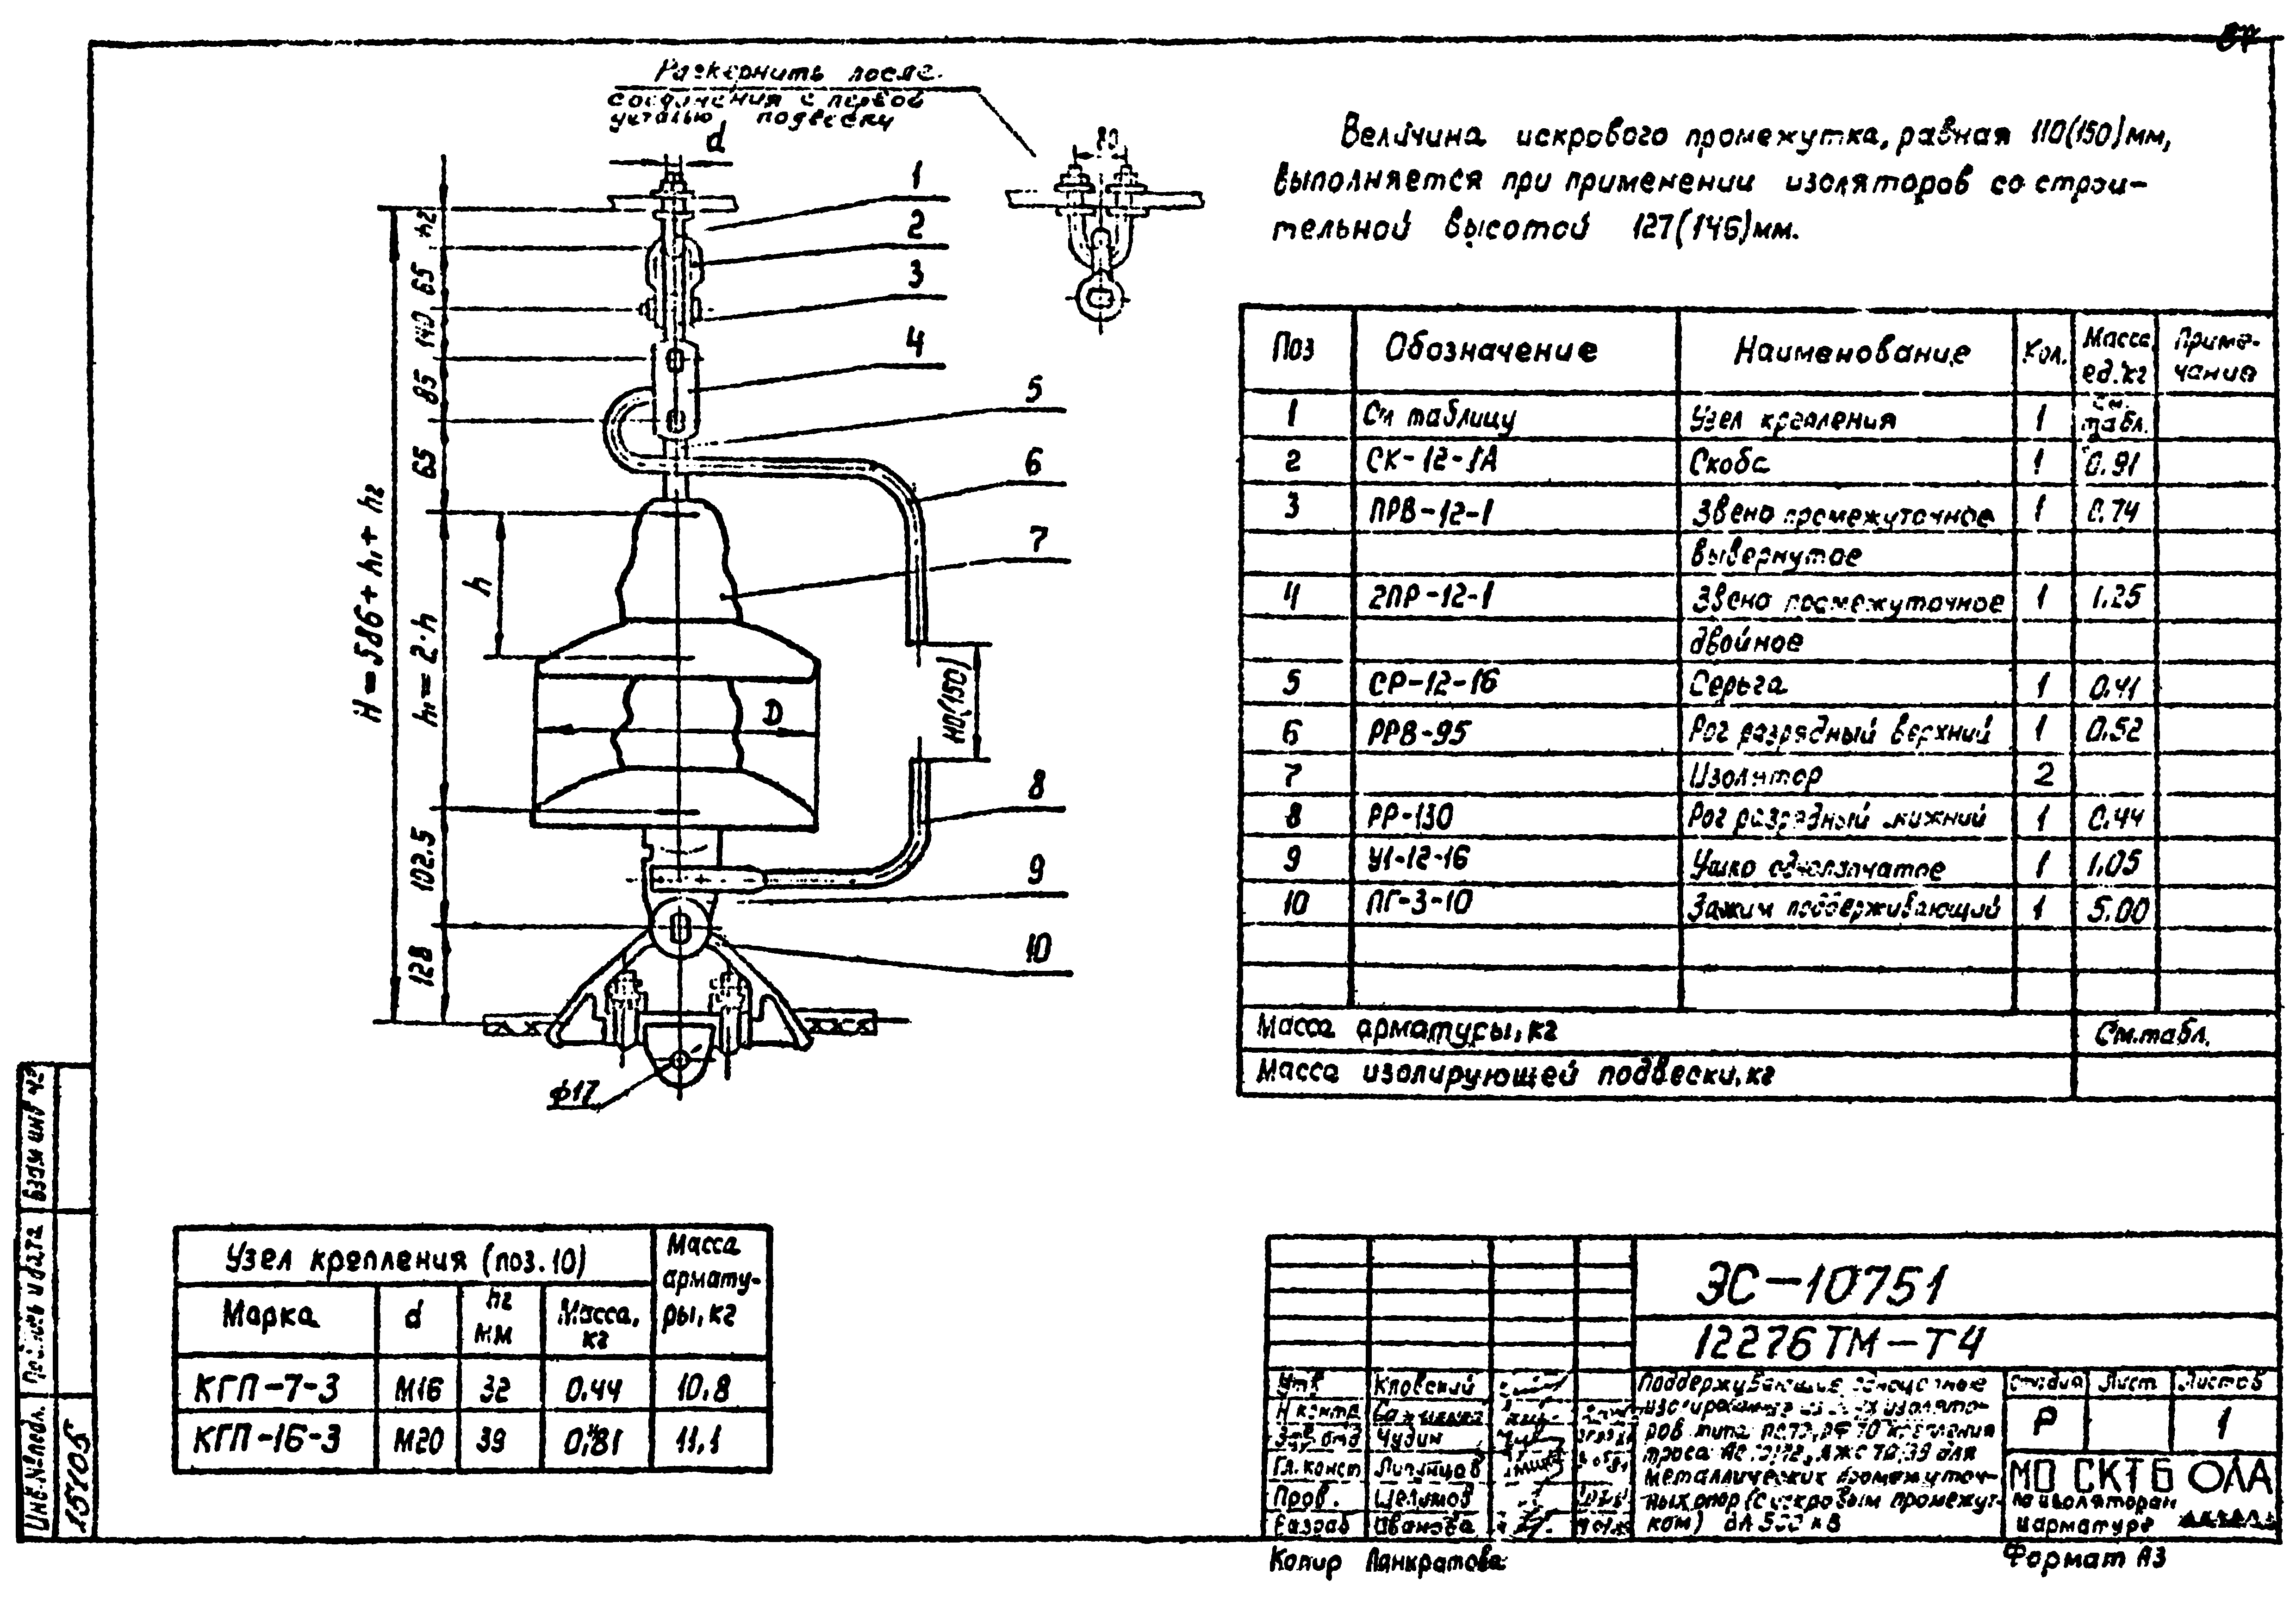 Раскернить после
соединения с первой
деталью подвески
d
1
2
3
4
5
6
7
8
9
10
80
h2
65
140
85
65
h
h₁ = 2·h
H = 586 + h₁ + h2
D
110(150)
102.5
128
ф17
Величина искрового промежутка, равная 110(150)мм,
выполняется при применении изоляторов со строи-
тельной высотой 127(146)мм.
Поз Обозначение Наименование Кол. Масса ед.кг Приме-чание
1 См таблицу Узел крепления 1 См. табл.
2 СК-12-1А Скоба 1 0.91
3 ПРВ-12-1 Звено промежуточное 1 0.74
вывернутое
4 2ПР-12-1 Звено промежуточное 1 1.25
двойное
5 СР-12-16 Серьга 1 0.41
6 РРВ-95 Рог разрядный верхний 1 0.52
7 Изолятор 2
8 РР-130 Рог разрядный нижний 1 0.44
9 У1-12-16 Ушко однолапчатое 1 1.05
10 ПГ-3-10 Зажим поддерживающий 1 5.00
Масса арматуры, кг См.табл.
Масса изолирующей подвески, кг
Узел крепления (поз.10) Масса армату-ры, кг
Марка d h2 мм Масса, кг
КГП-7-3 М16 32 0.44 10.8
КГП-16-3 М20 39 0,81 11,1
ЭС-10751
12276ТМ-Т4
Утв Кловский
Н контр
Чудин
Гл. конст Липунцов
Пров. Щелимов
Разраб Иванова
Поддерживающие одноцепные
крепления
троса для
металлических промежуточ-
ных опор (с искровым промежут-
ком)
стадия Лист Листов
Р 1
МО СКТБ ОЛА
по изоляторам
и арматуре
Копир Панкратова
Формат А3
Инв.№ подл. Подпись и дата Взам инв №
15405